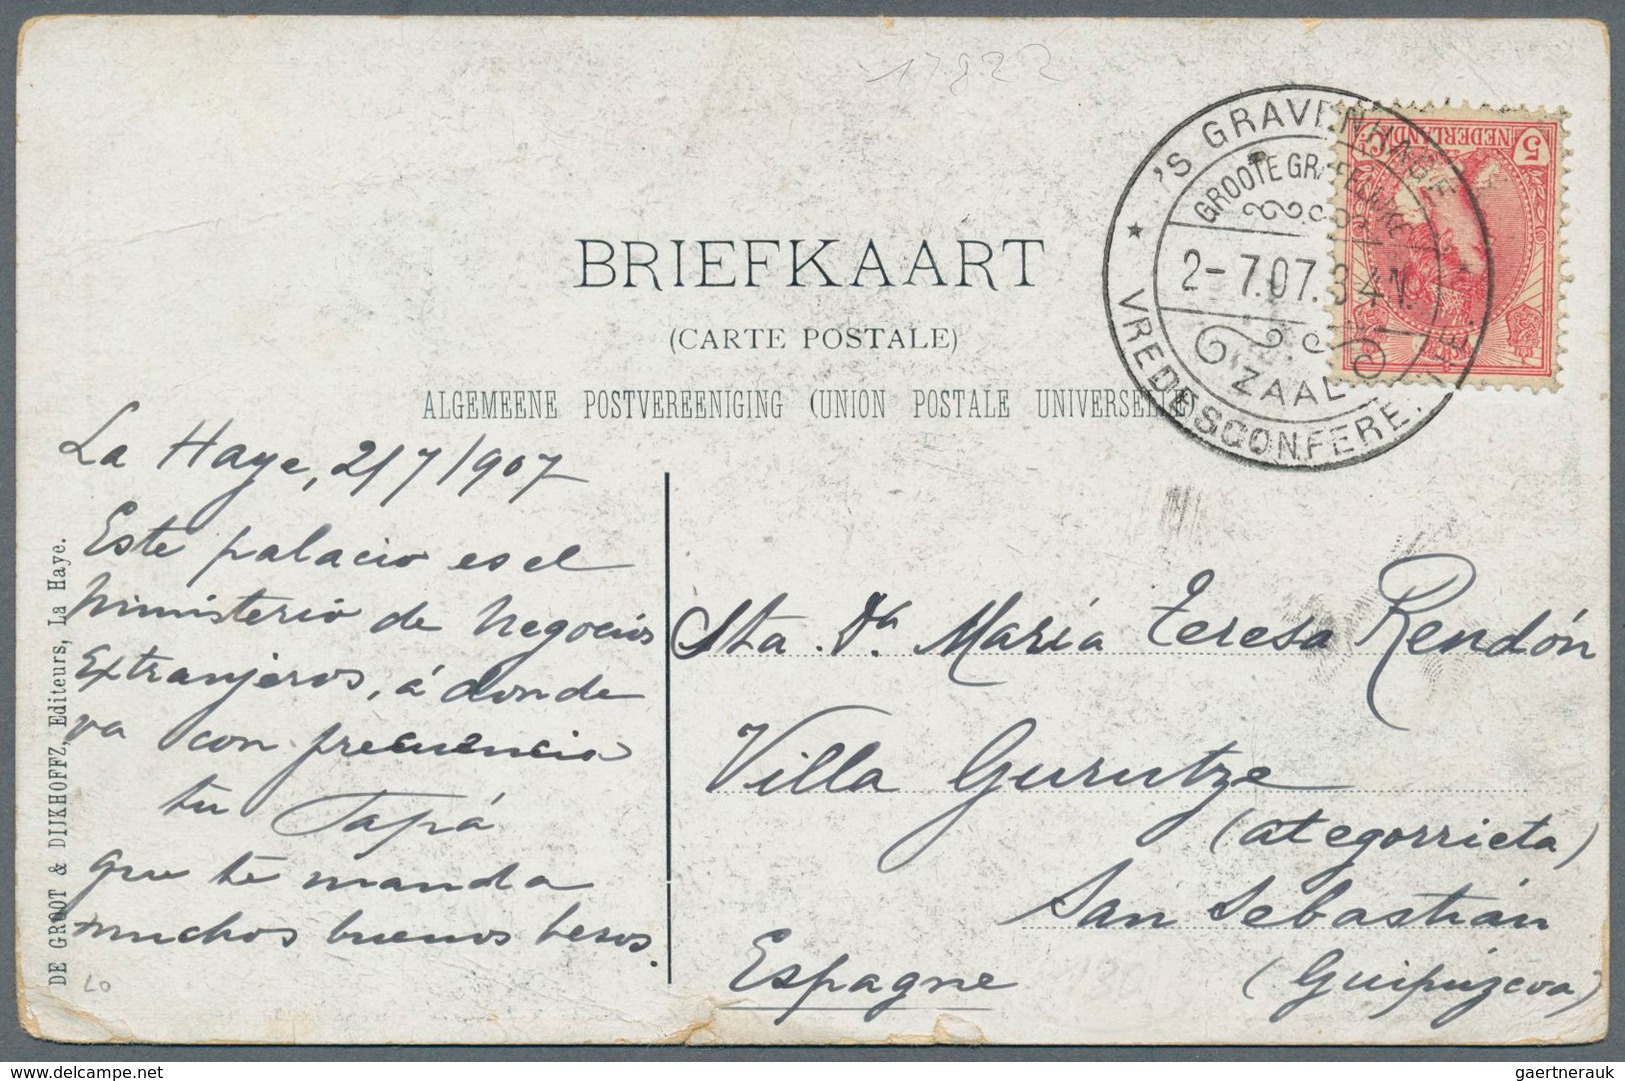 17822
'S GRAVENHAGE
GROOTE GRAFELIJKE
2-7.07.3 4N.
ZAAL
VREDESCONFERE
5 NEDERLAND
BRIEFKAART
(CARTE POSTALE)
ALGEMEENE POSTVEREENIGING (UNION POSTALE UNIVERSELLE)
La Haye, 2/7/907
Este palacio es el
ministerio de Negocios
Extranjeros, á donde
va con frecuencia
tu Papá
que te manda
muchos buenos besos.
DE GROOT & DIJKHOFFZ, Editeurs, La Haye.
Sta. Da. María Teresa Rendón
Villa Gurutze
(ategorrieta)
San Sebastián
Espagne (Guipúzcoa)
gaertnerauk